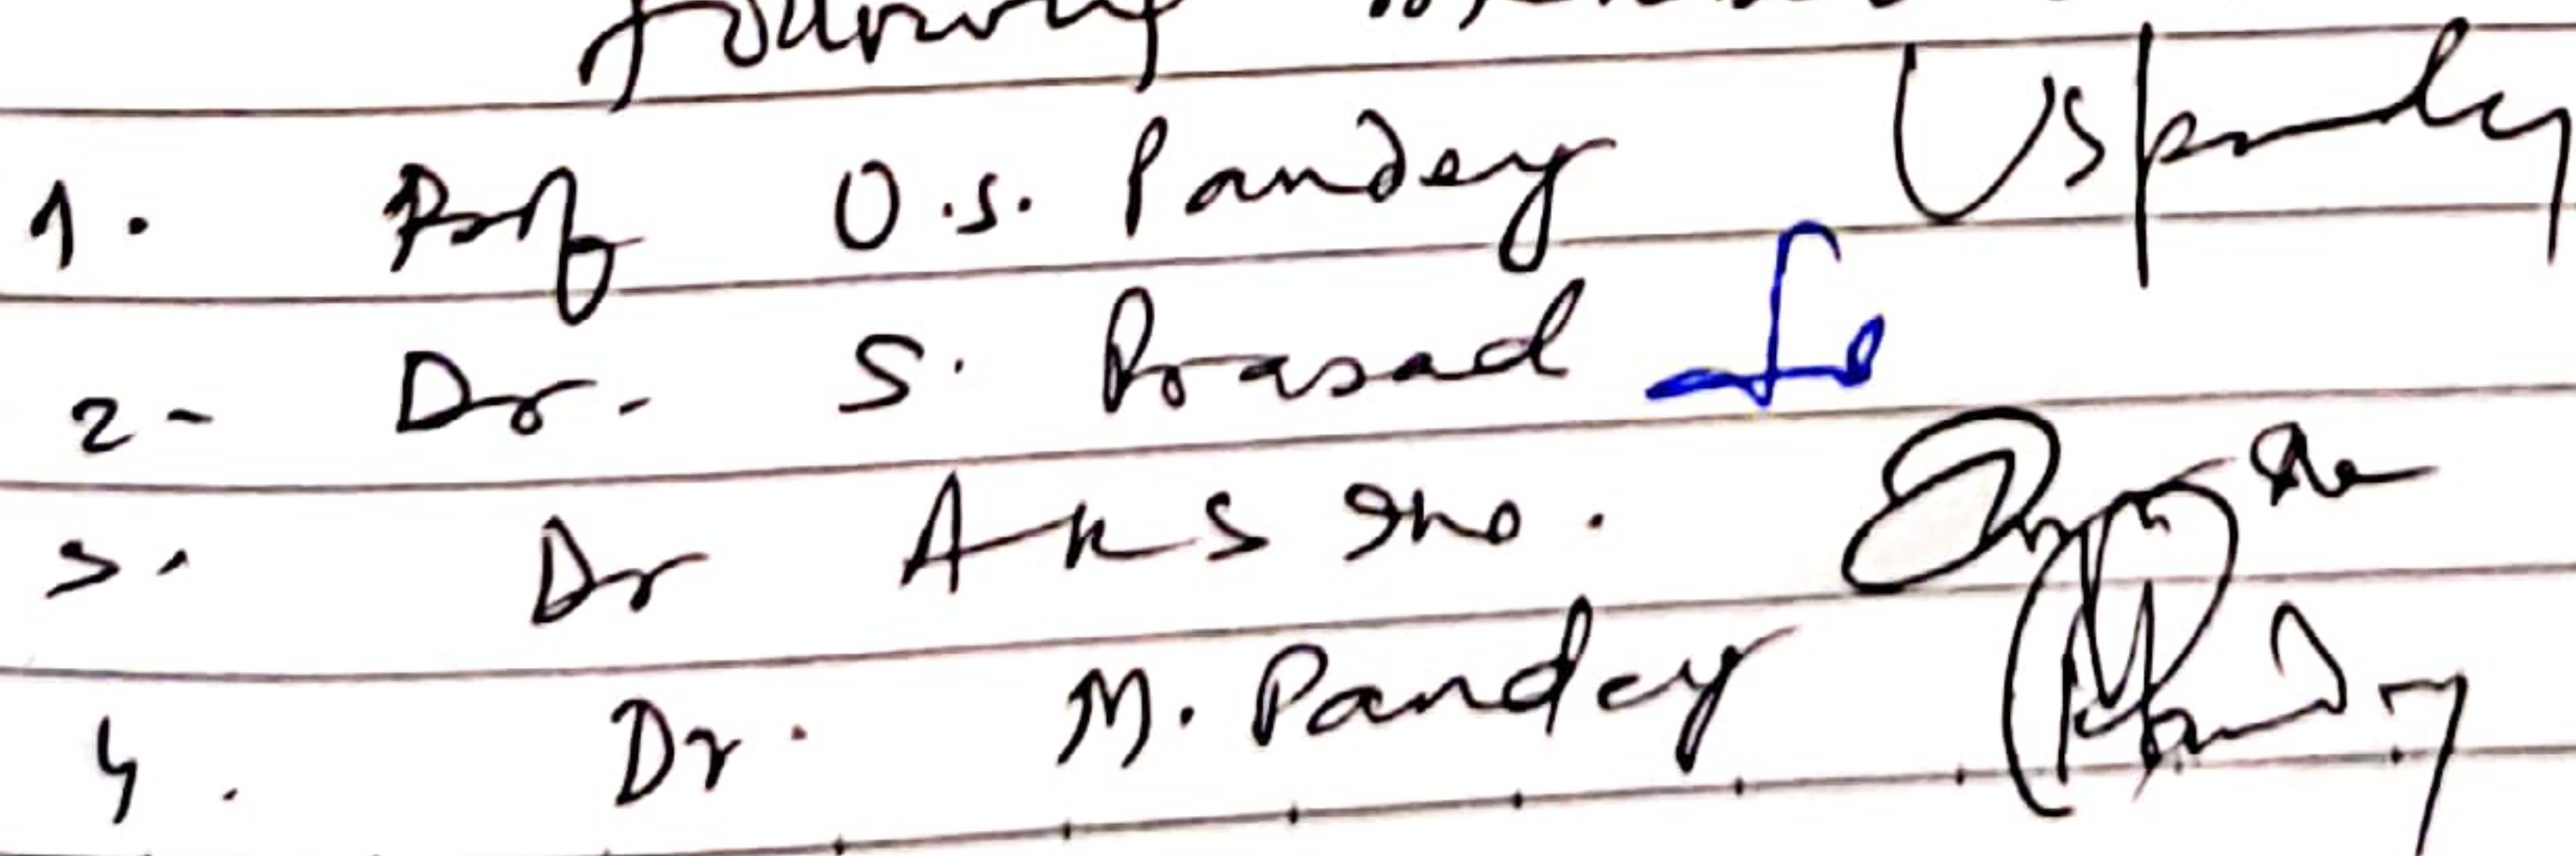 following
1. Prof U.S. Pandey USPandey
2- Dr. S. Prasad
3. Dr A K S
4. Dr. M. Pandey